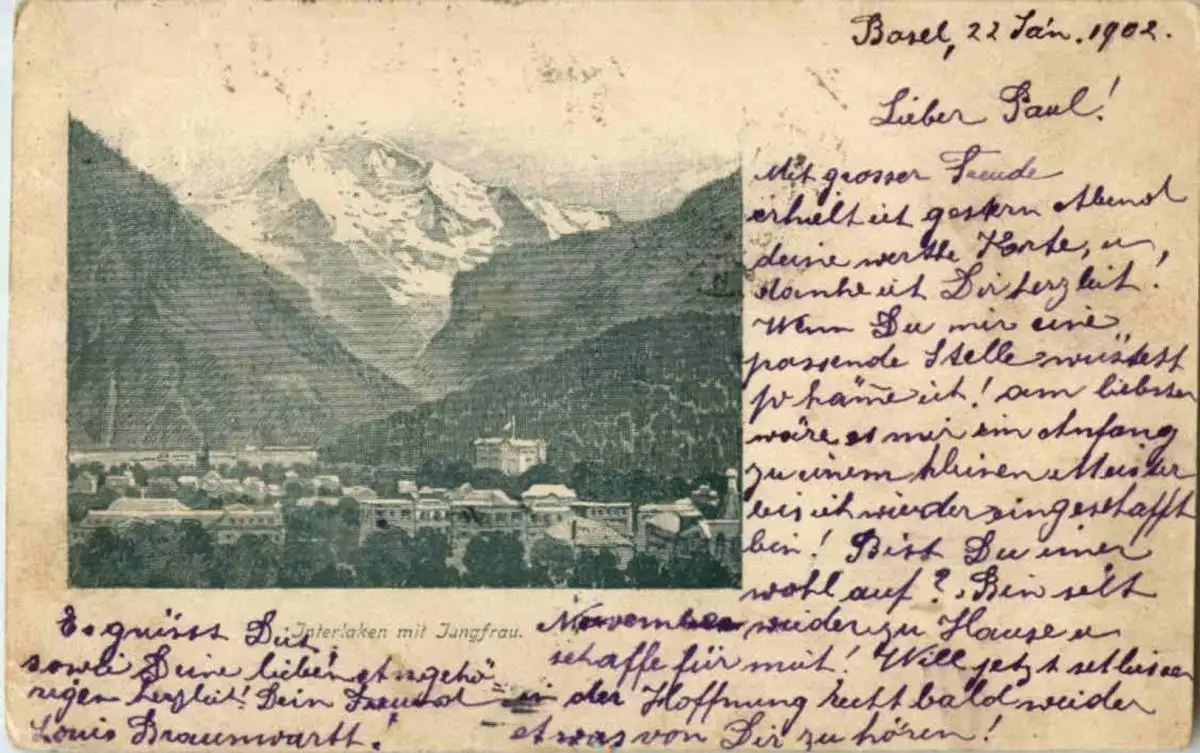 Basel, 22 Jan. 1902.
Lieber Paul!
Mit grosser Freude
erhielt ich gestern Abend
deine werthe Karte, u
danke ich Dir herzlich!
Wenn Du mir eine
passende Stelle wüsstest
so käme ich! am liebsten
wäre es mir ein Anfang
zu einem kleinen Meister
bis ich wieder eingeschafft
bin! Bist Du imer
wohl auf? Bin seit
November wieder zu Hause u
schaffe für mich! Will jetzt schliessen
in der Hoffnung recht bald wieder
etwas von Dir zu hören!
Es grüsst Dich
sowie Deine lieben Angehö
rigen herzlich! Dein Freund
Louis Braunwarth!
Interlaken mit Jungfrau.